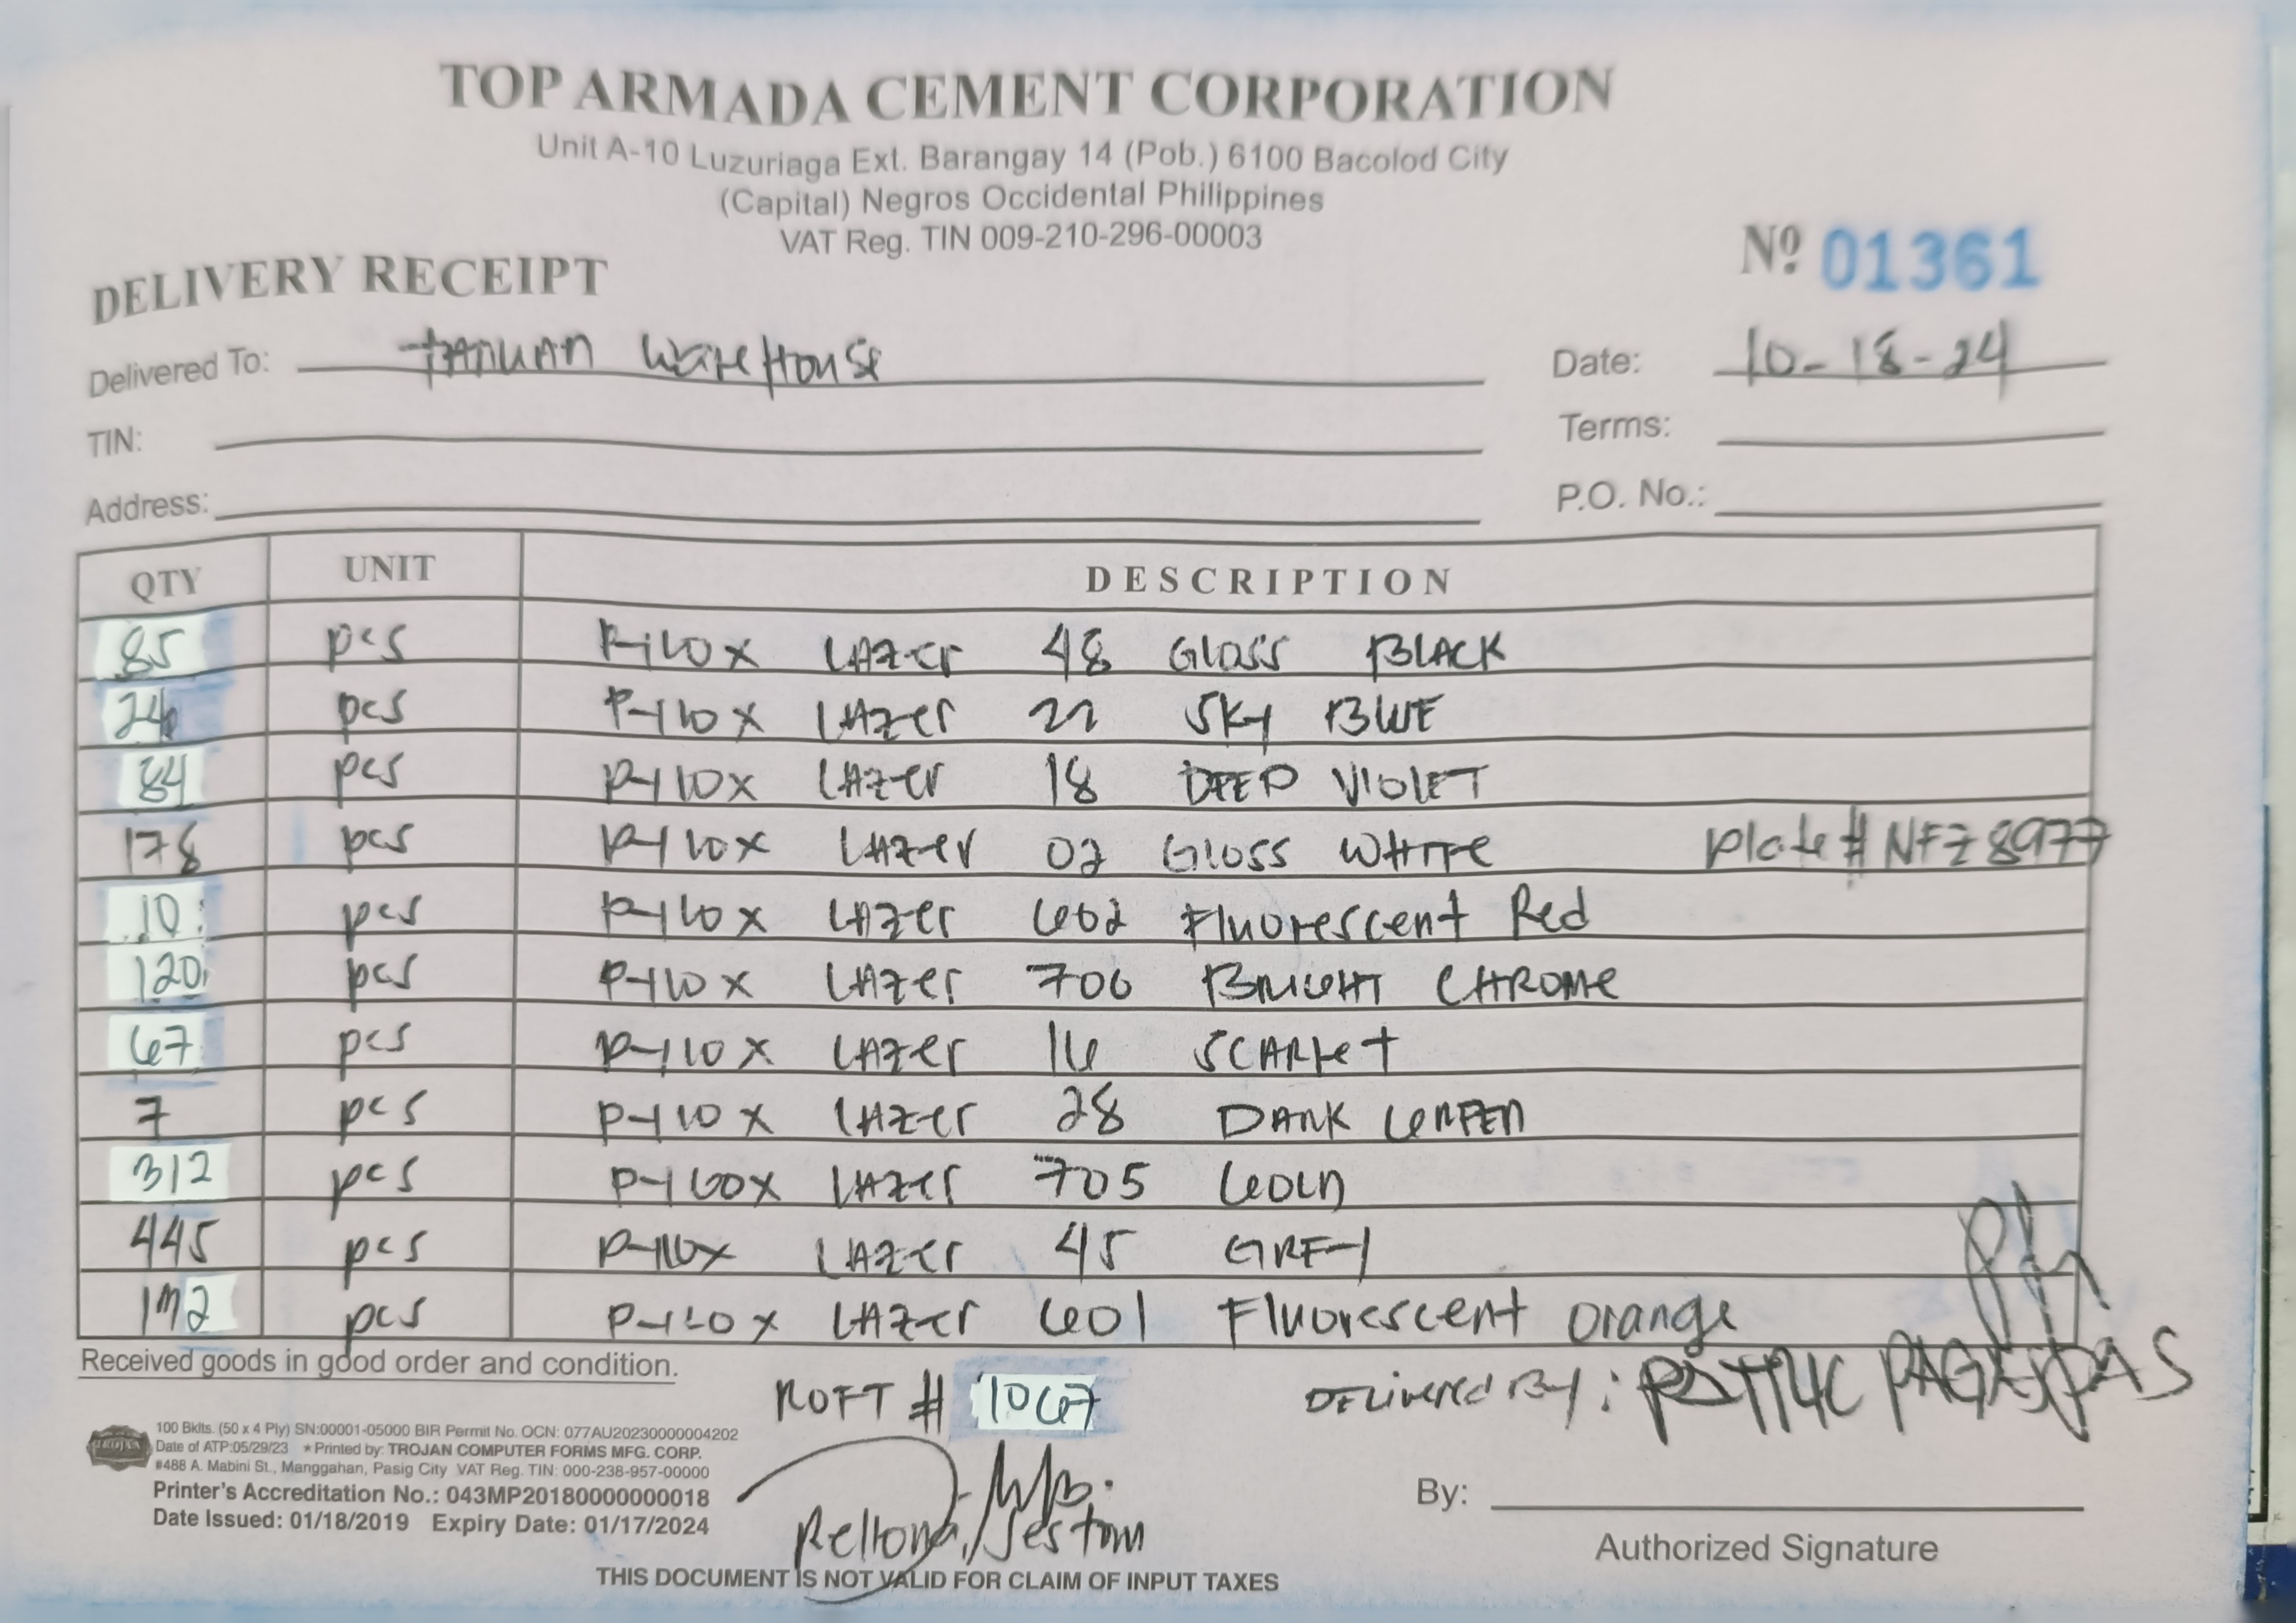 TOP ARMADA CEMENT CORPORATION
Unit A-10 Luzuriaga Ext. Barangay 14 (Pob.) 6100 Bacolod City
(Capital) Negros Occidental Philippines
VAT Reg. TIN 009-210-296-00003
Nº 01361
DELIVERY RECEIPT
Delivered To: WareHouse
Date: 10-18-24
TIN:
Terms:
Address:
P.O. No.:
QTY UNIT DESCRIPTION
85 pcs LAZer 48 Gloss BLACK
pcs LAZer 22 SKY BLUE
84 pcs P-110x LAZer 18 DEEP VIOLET
178 pcs P-110x LAZer 02 Gloss WHITE Plate # NFZ 8977
10 pcs LAZer 602 Fluorescent Red
120 pcs P-110x LAZer 706 BRIGHT CHROME
67 pcs P-110x LAZer 16 SCARLET
7 pcs P-110x LAZer 28 DARK GREEN
312 pcs LAZer 705 GOLD
445 pcs P-110x LAZer 45 GREY
pcs LAZer 601 Fluorescent orange
Received goods in good order and condition.
ROFT # 1067
DELivered By:
100 Bklts. (50 x 4 Ply) SN:00001-05000 BIR Permit No. OCN: 077AU20230000004202
Date of ATP:05/29/23 * Printed by: TROJAN COMPUTER FORMS MFG. CORP.
TROJAN
#488 A. Mabini St., Manggahan, Pasig City VAT Reg. TIN: 000-238-957-00000
Printer's Accreditation No.: 043MP20180000000018
Date Issued: 01/18/2019 Expiry Date: 01/17/2024
By:
Authorized Signature
THIS DOCUMENT IS NOT VALID FOR CLAIM OF INPUT TAXES